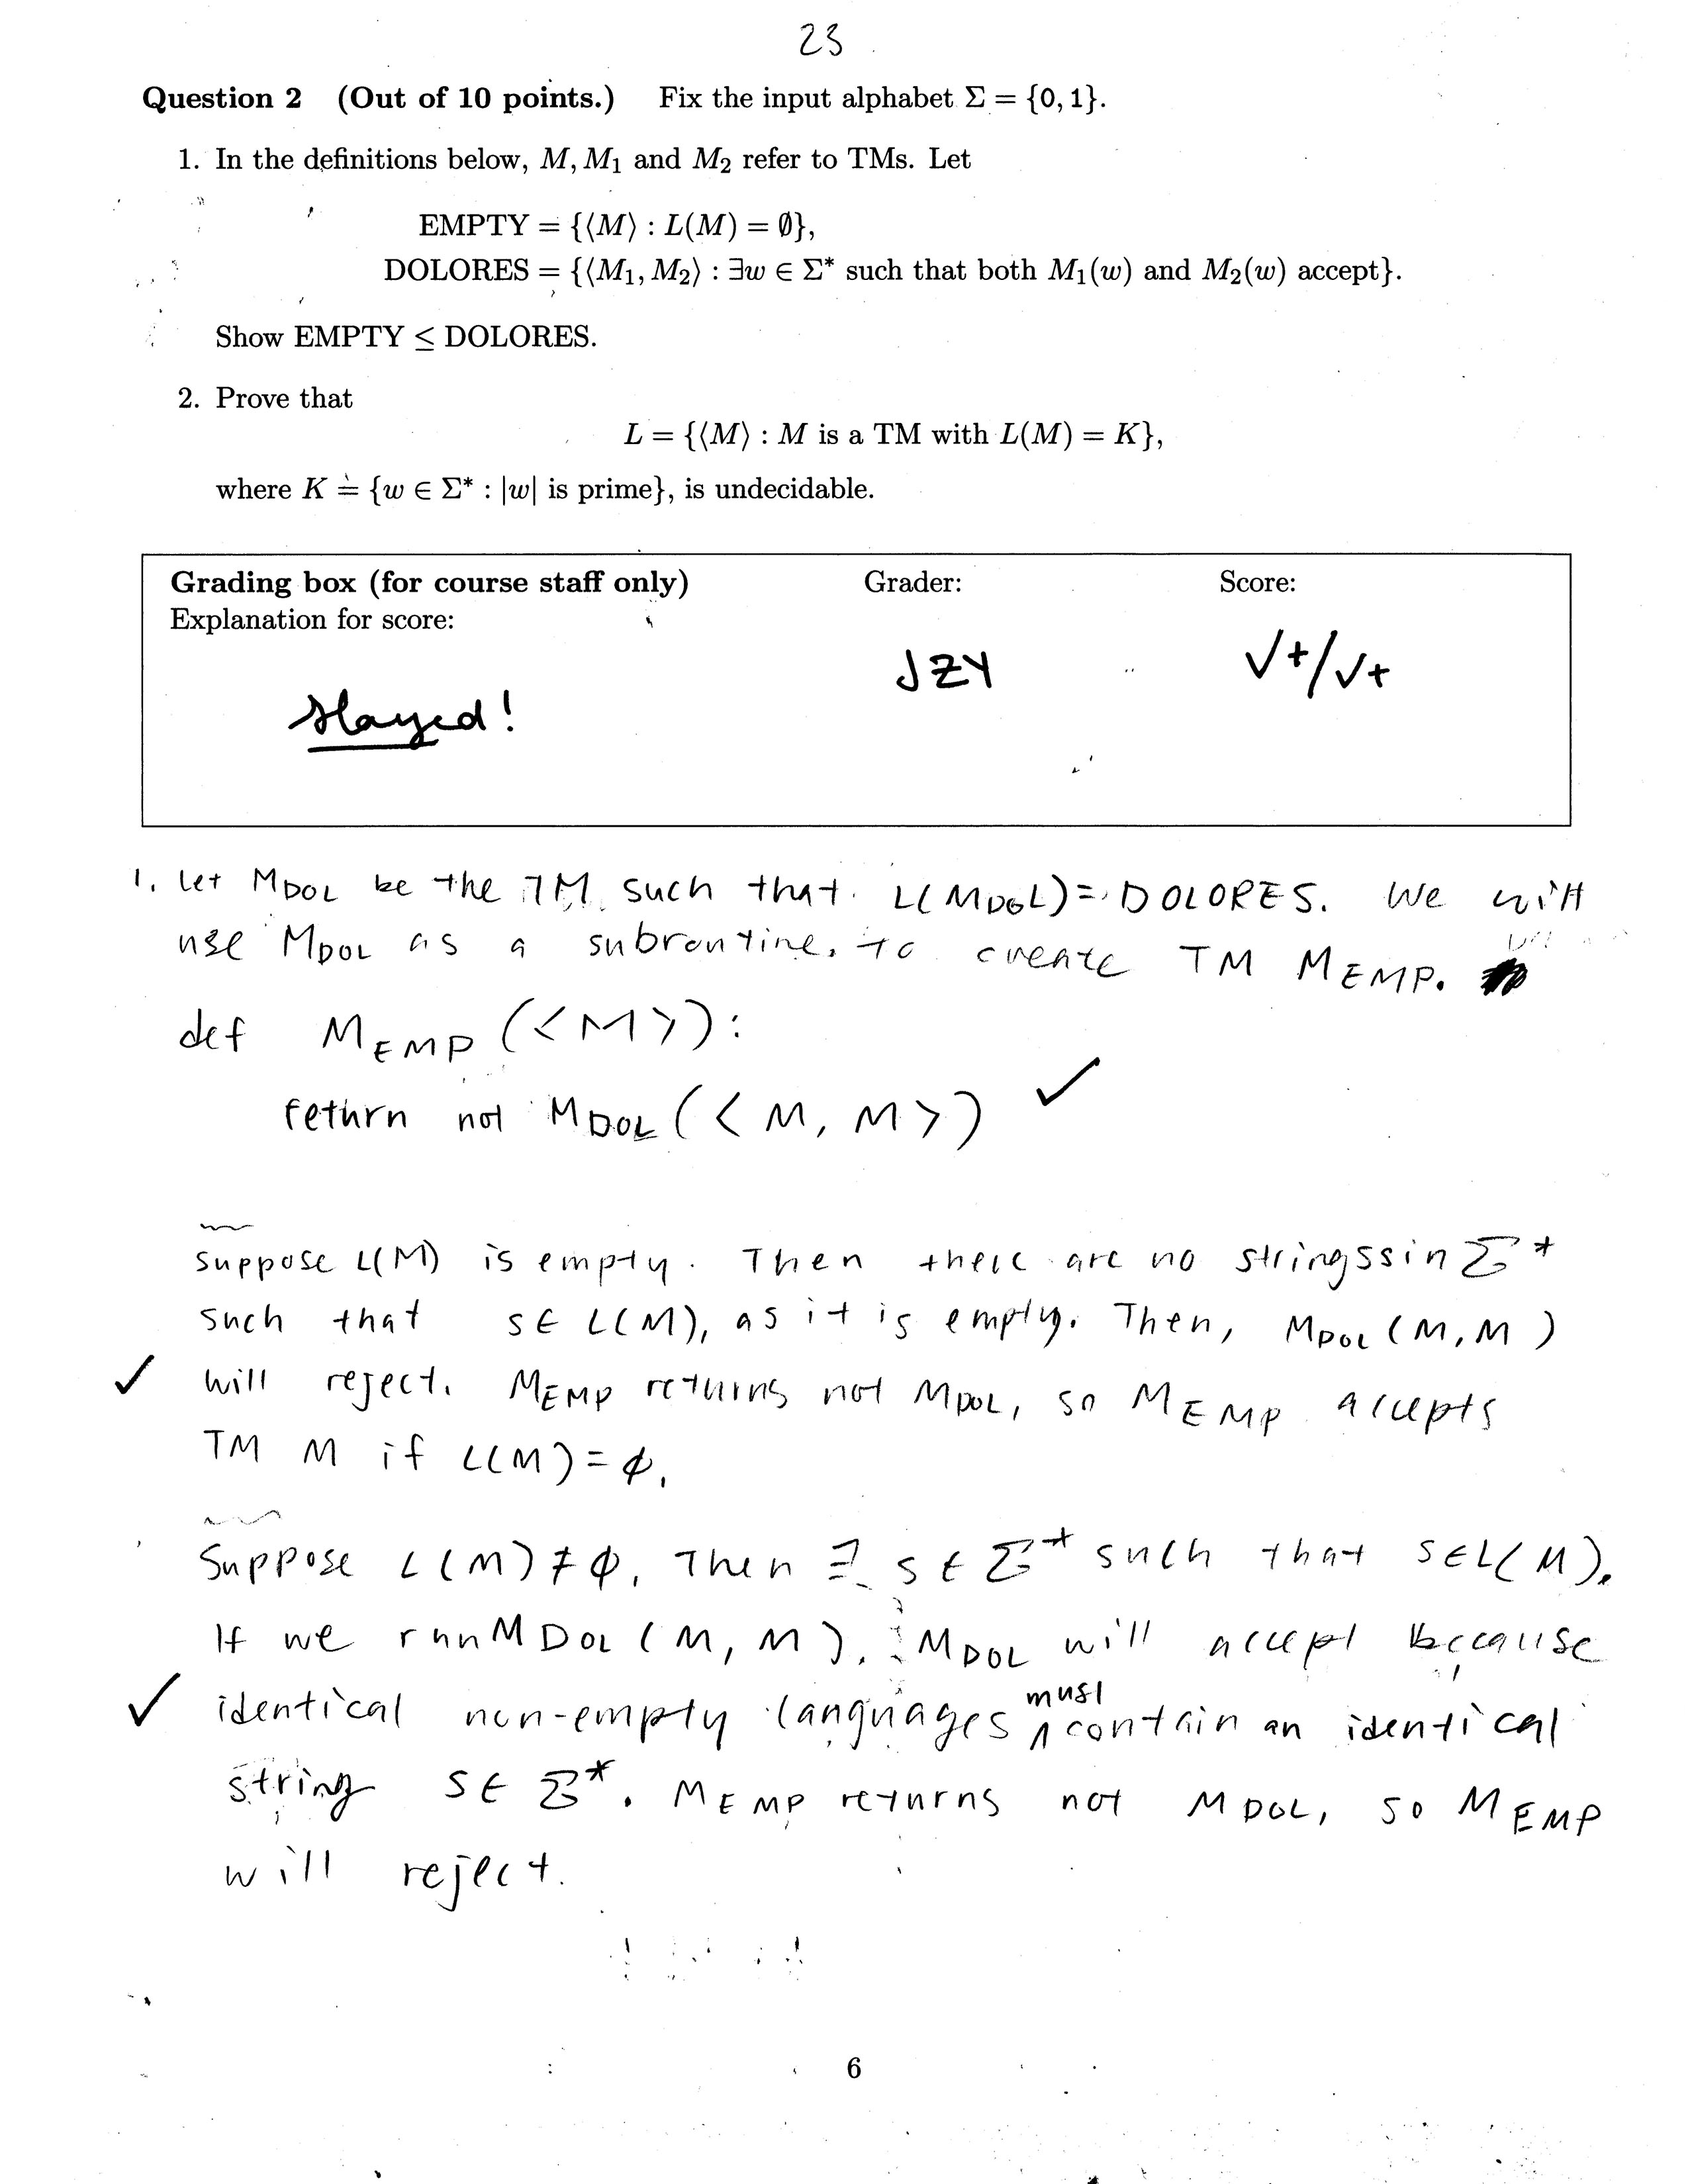 23
Question 2 (Out of 10 points.) Fix the input alphabet Σ = {0, 1}.
1. In the definitions below, M, M₁ and M₂ refer to TMs. Let
EMPTY = {⟨M⟩ : L(M) = ∅},
DOLORES = {⟨M₁, M₂⟩ : ∃w ∈ Σ* such that both M₁(w) and M₂(w) accept}.
Show EMPTY ≤ DOLORES.
2. Prove that
L = {⟨M⟩ : M is a TM with L(M) = K},
where K = {w ∈ Σ* : |w| is prime}, is undecidable.
Grading box (for course staff only) Grader: Score:
Explanation for score:
JZY √+/√+
slayed!
1. Let M_DOL be the TM such that L(M_DOL) = DOLORES. We will
use M_DOL as a subroutine to create TM M_EMP.
def M_EMP (<M>):
return not M_DOL (<M, M>) ✓
suppose L(M) is empty. Then there are no strings s in Σ*
such that s ∈ L(M), as it is empty. Then, M_DOL (M, M)
✓ will reject. M_EMP returns not M_DOL, so M_EMP accepts
TM M if L(M) = ∅.
Suppose L(M) ≠ ∅. Then ∃ s ∈ Σ* such that s ∈ L(M).
If we run M_DOL (M, M), M_DOL will accept because
✓ identical non-empty languages must contain an identical
string s ∈ Σ*. M_EMP returns not M_DOL, so M_EMP
will reject.
6